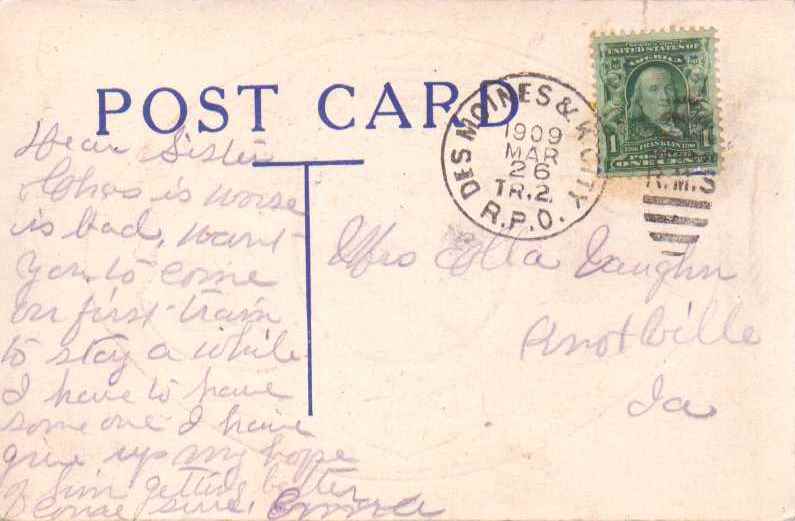 POST CARD
DES MOINES & K. CITY
1909
MAR
26
TR.2.
R.P.O.
UNITED STATES OF
AMERICA
1 1
FRANKLIN
POSTAGE
ONE CENT
R.M.S
Dear Sister
Chas is worse
is bad, want
you to come
on first train
to stay a while
I have to have
some one I have
give up my hope
of him getting better
Come sure, Emma
Mrs Ella Vaughn
Ia